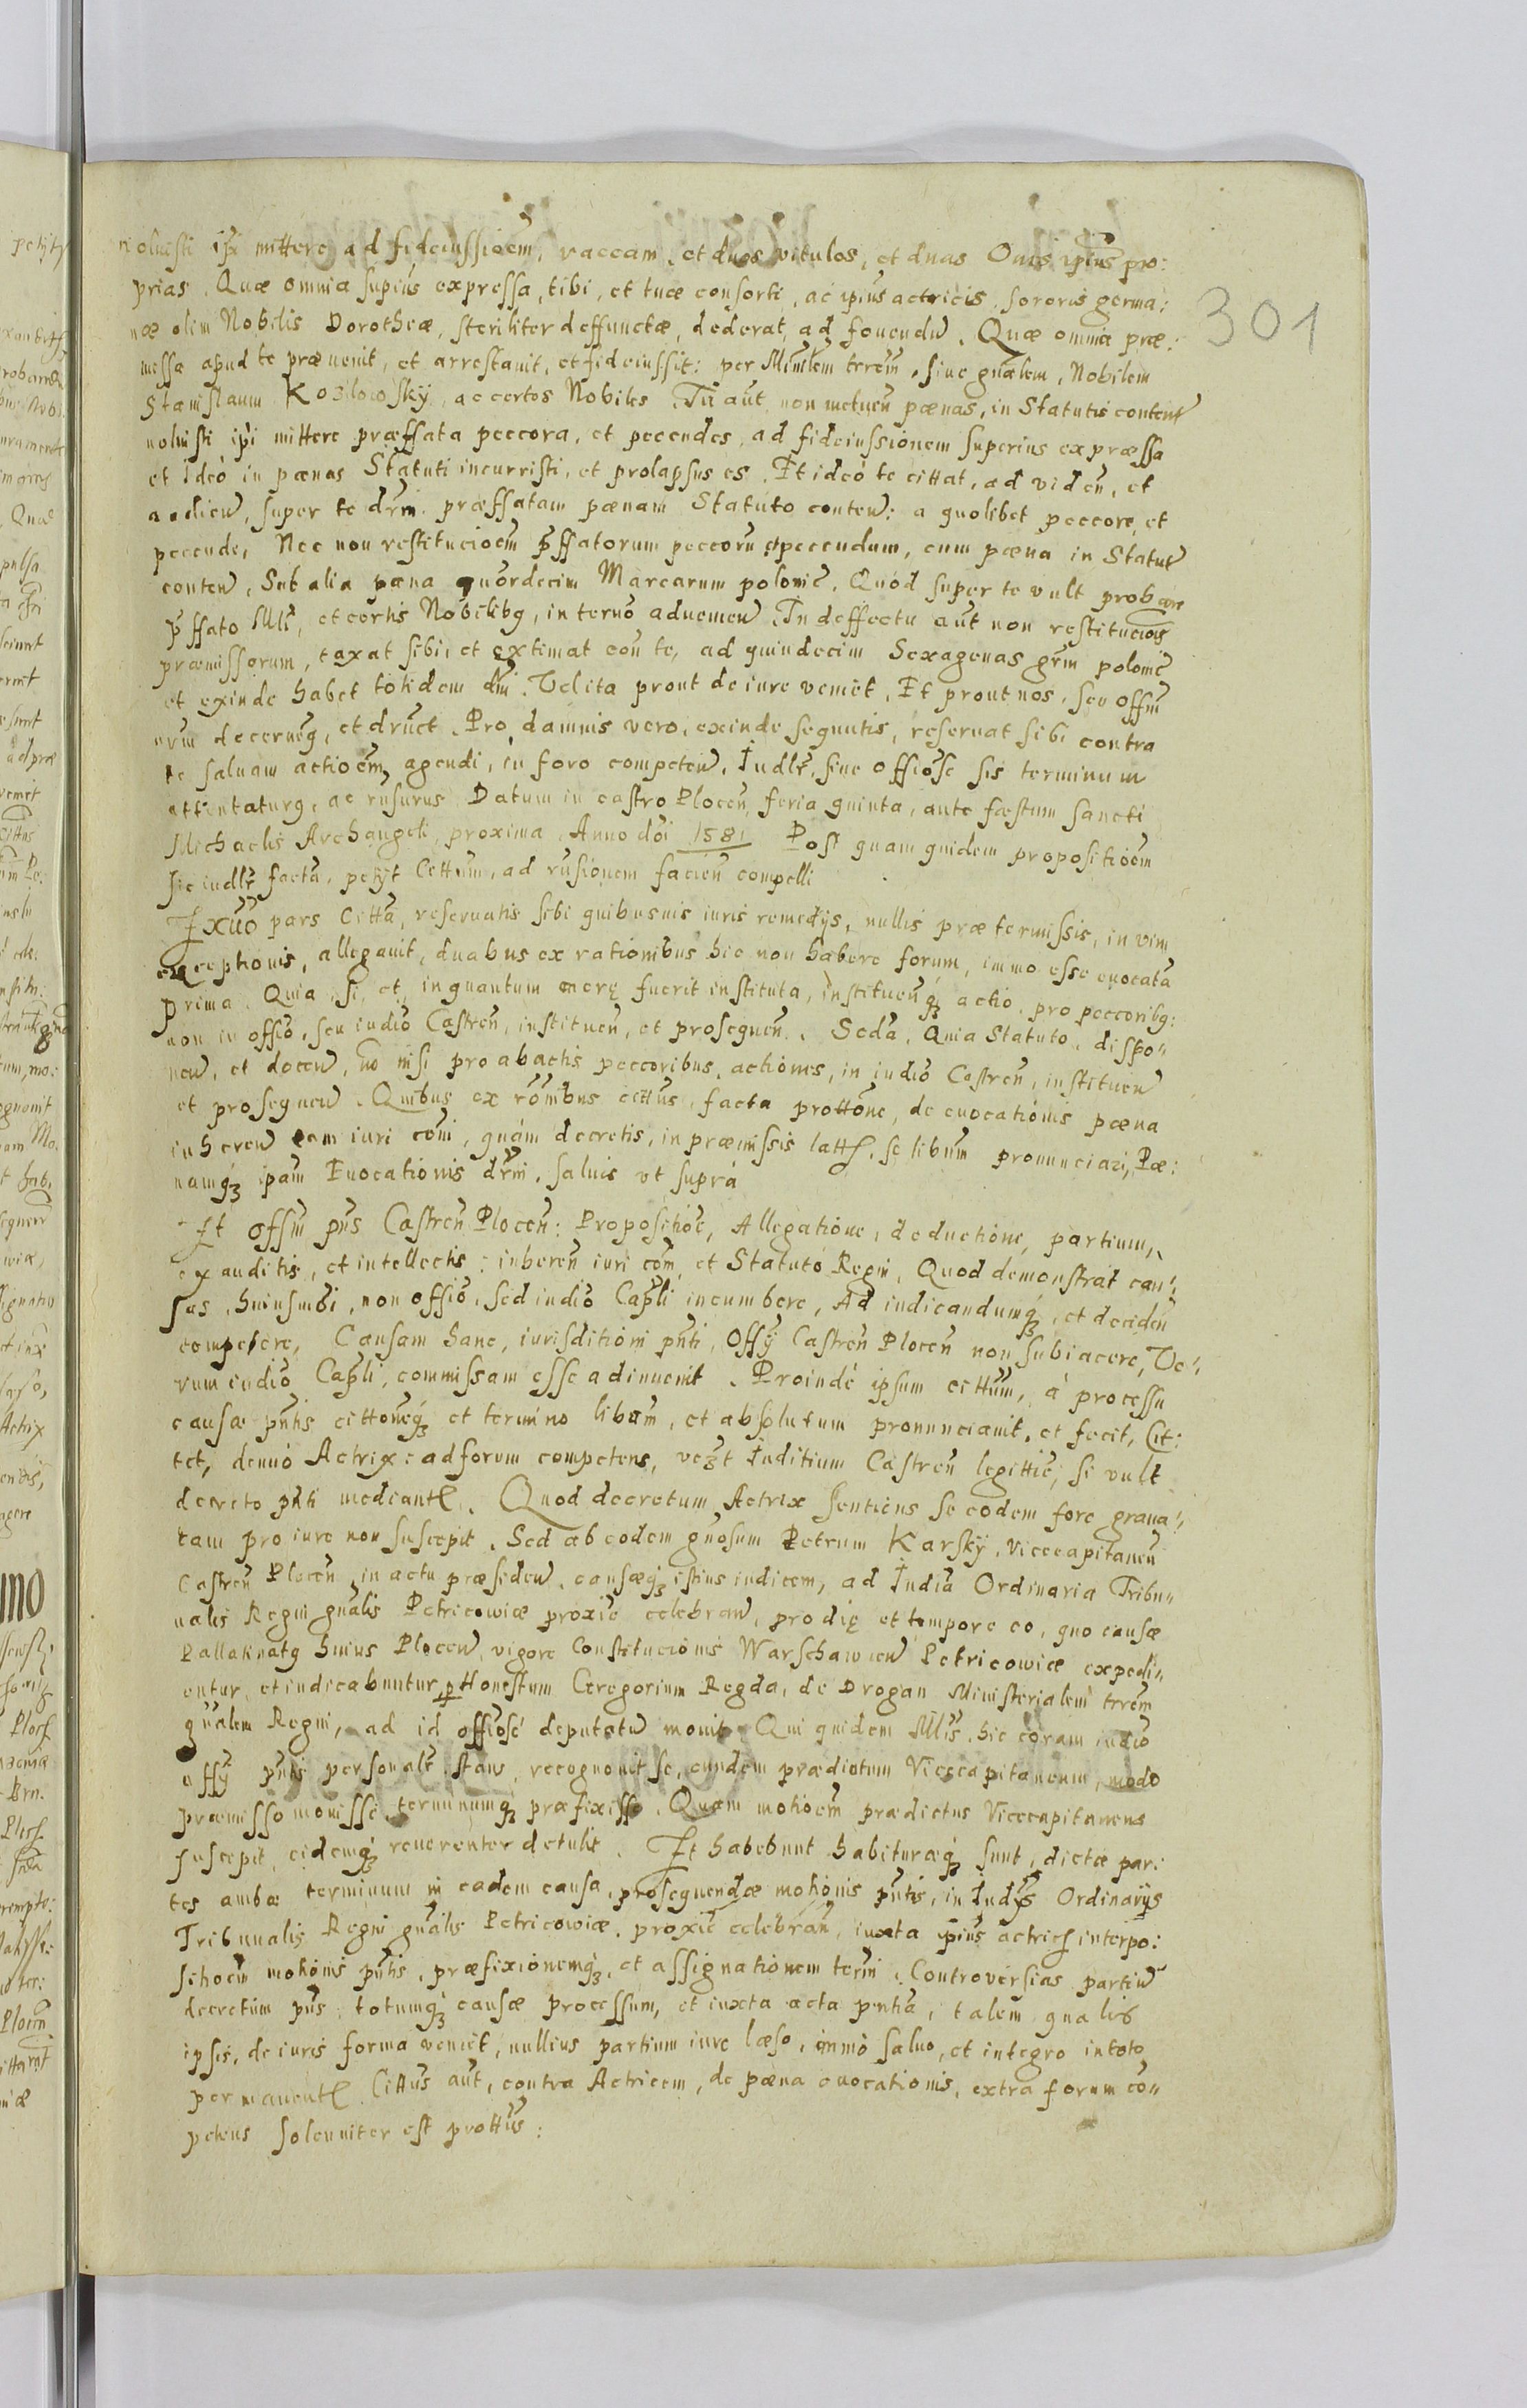 301
noluisti ipi mittere ad fideiussioem, vaccam, et duos vitulos, et duas Oves ipius pro:
prias. Quæ omnia supius expressa, tibi, et tuæ consorti, ac ipius actricis, sororis germa:
næ olim Nobilis Dorotheæ, steriliter deffunctæ, dederat, ad fouendu. Quæ omnia præ:
missa apud te præuenit, et arrestauit, et fideiussit: per Mimlem terem, siue gnalem, Nobilem
Stanislaum Kozilowsky, ac certos Nobiles. Tu aut non metuen pænas, in Statutis content
noluisti ipi mittere præffata peccora, et peccudes, ad fideiussionem superius expræssa
et ideò in pænas Statuti incurristi, et prolapsus es. Et ideò te cittat, ad viden, et
audien, super te drni præffatam pænam Statuto conten: a quolibet peccore, et
peccude, Nec non restitucioem pffatorum peccoru et peccudum, cum pæna in Statut
conten, Sub alia pæna quordecim Marcarum polonic. Quòd super te vult probare
pffato Mli, et certis Nobilibq, in termo aduenien. In deffectu aut non restitucois
præmissorum, taxat sibi, et extimat con te, ad quindecim Sexagenas grm polonic
et exinde habet totidem dni. Velita prout de iure veniet. Et prout nos, seu offm
nrm decerneq, et drnet. Pro damnis vero, exinde sequutis, reseruat sibi contra
te saluam actioem, agendi, in foro competen. Iudlr, siue offiose sis terminum
attentaturq, ac rnsurus. Datum in castro Plocen, feria quinta, ante fæstum sancti
Michaelis Archangeli, proxima, Anno doi 1581 Post quam quidem propositioem
sic iudlr facta, petyt Cittum, ad rnsionem facien compelli
Exuo pars Citta, reseruatis sibi quibusuis iuris remedijs, nullis prætermissis, in vim
exceptionis, allegauit, duabus ex rationibus hic non habere forum, immo esse euocata
prima. Quia, si, et, inquantum merę fuerit instituta, instituenq actio, pro peccoribq:
non in offio, seu iudio Castren, instituen, et prosequen. Seda, Quia Statuto, dispo„
nen, et docen, no nisi pro abactis peccoribus, actiones, in iudio Castren, instituen
et prosequen. Quibus ex rombus cittus, facta prottone, de euocationis pæna
inheren tam iuri comi, quàm decretis, in præmissis latt, se libum pronunciari, Pæ:
namq ipam Euocationis drni, saluis vt suprà
Et offm pns Castren Plocen: Propositioe, Allegatione, deductione, partium,
exauditis, et intellectis: inheren iuri com et Statuto Regni, Quod demonstrat cau„
sas, huiusmodi, non offio, sed iudio Capli incumbere, Ad iudicandumq, et deciden
competere, Causam hanc, iurisditioni pnti, Offy Castren Plocen non subiacere, Ve„
rum iudio Capli, commissam esse adinuenit. Proindè ipsum cittum, à processu
causæ pntis cittoneq et termino libum, et absolutum pronunciauit, et fecit, Cit:
tet, denuò Actrix: ad forum competens, vezt Iuditium Castren legittie, si vult
decreto pnti mediant. Quod decretum Actrix sentiens se eodem fore graua„
tam pro iure non suscepit. Sed ab eodem gnosum Petrum Karsky, Vicecapitaneu
Castren Plocen, in actu præsiden, causæq istius iudicem, ad Iudia Ordinaria Tribu„
nalis Regni gnalis Petricowiæ proxie celebran, pro dię et tempore eo, quo causæ
Pallatinatq huius Plocen, vigore Constitucionis Warschawien Petricowiæ expedi„
entur, et iudicabuntur, p Honestum Gregorium Regda, de Drogan Ministerialem trrem
gnalem Regni, ad id offiose deputatu mouit. Qui quidem Mlis hic coram iudio
offy pntis personalr stans, recognouit se, eundem prædictum Vicecapitaneum, modo
præmisso mouisse, terminumq præfixisse. Quam motioem prædictus Vicecapitaneus
suscepit, eidemq reuerenter detulit. Et habebunt habituræq sunt, dictæ par:
tes ambæ terminum in eadem causa, prosequendæ motionis pntis, in Iudys Ordinarijs
Tribunalis Regni gnalis Petricowiæ, proxie celebran, iuxta ipius actricis interpo:
sitioem motionis pntis, præfixionemq, et assignationem termi. Controversias partiu
decretum pns, totumq causæ processum, et iuxta acta pntia, talem qualis
ipsis, de iuris forma veniet, nullius partium iure læso, immò saluo, et integro in toto
permanent. Cittus aut, contra Actricem, de pæna euocationis, extra forum co„
petens solenniter est prottus: